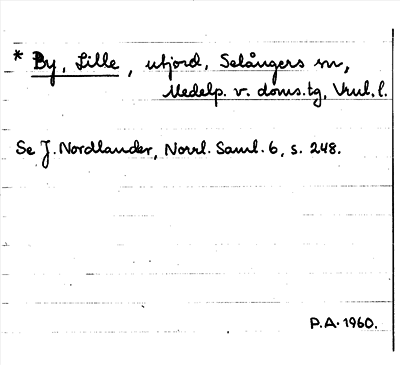 * By, Lille, utjord, Selångers sn,
Medelp. v. doms.tg, Vnul. l.
Se J. Nordlander, Norrl. Saml. 6, s. 248.
P.A. 1960.